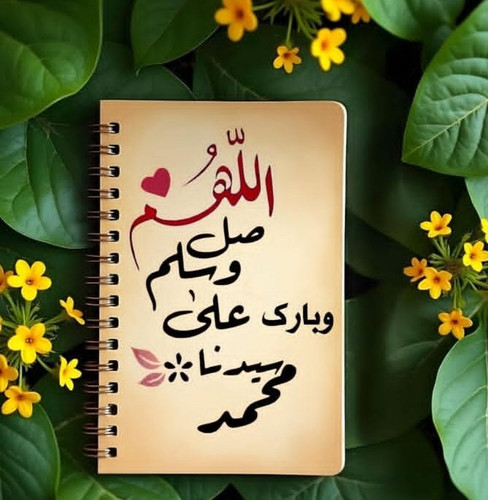 اللّهُم
صل
وسلم
وبارك على
سيدنا
محمد